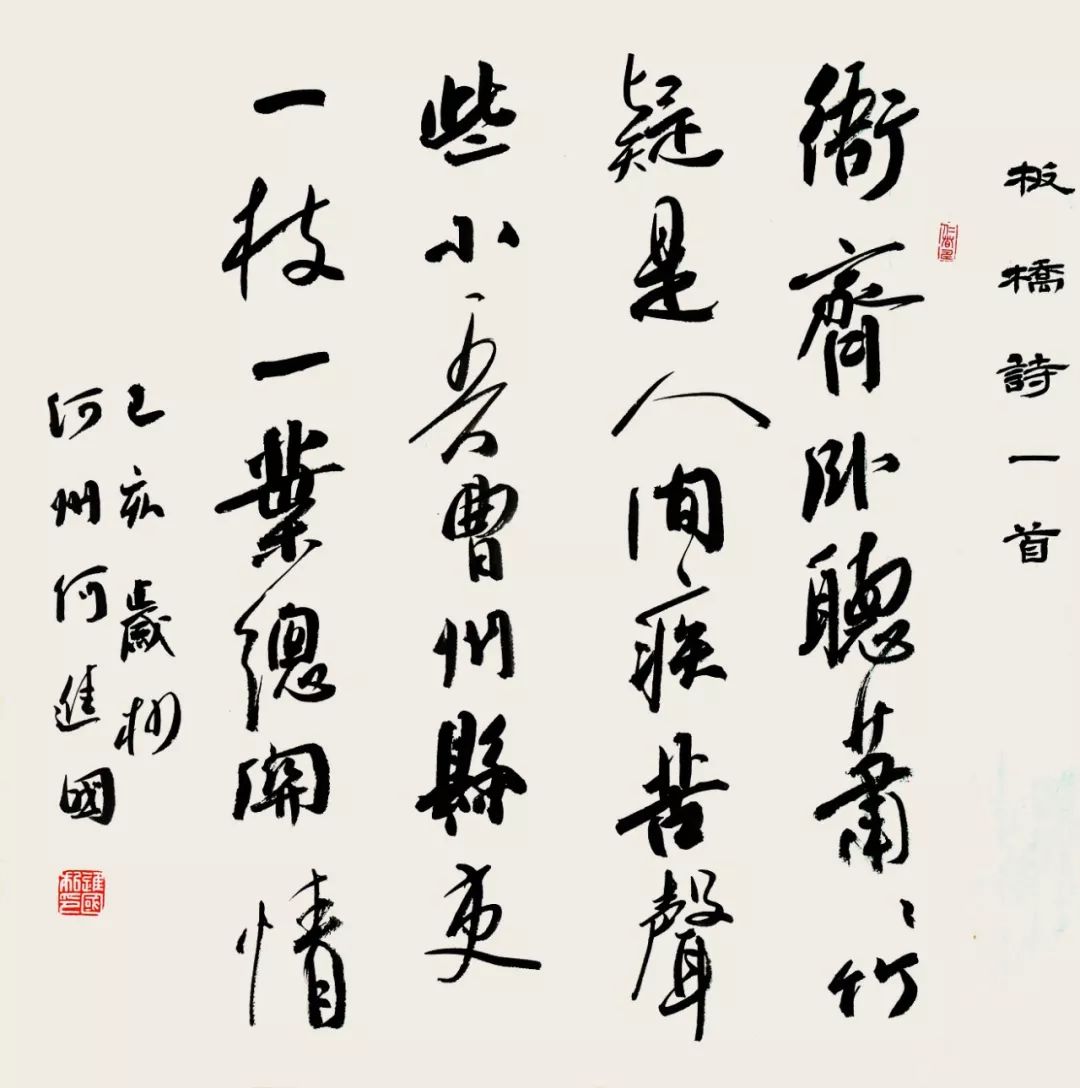 板橋詩一首
衙齋卧聽蕭〻竹
疑是人間疾苦聲
些小吾曹州縣吏
一枝一葉總關情
己亥歲杪
河州何進國
進國私印